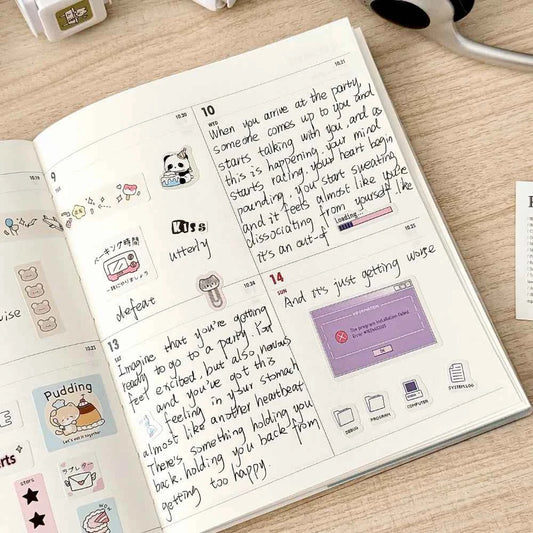 10.19
wise
10.25
Pudding
Let's eat it together
stars
9
10.20
Kiss
utterly
ベーキング時間
一緒にやりましょう
defeat
10
WED
10.21
When you arrive at the party,
someone comes up to you and
starts talking with you, and as
this is happening, your mind
starts rating, your heart begin
pounding, you start sweating
and it feels almost like you're
dissociating from yourself like
it's an out-of
Loading...
13
SAT
10.24
Imagine that you're getting
ready to go to a party. You
feel excited, but also nervous
and you've got this
feeling in your stomach
almost like another heartbeat
There's something holding you
back, holding you back from
getting too happy
14
SUN
10.25
And it's just getting worse
The program installation failed
DEBUG
PROGRAM
COMPUTER
SYSTEM.LOG